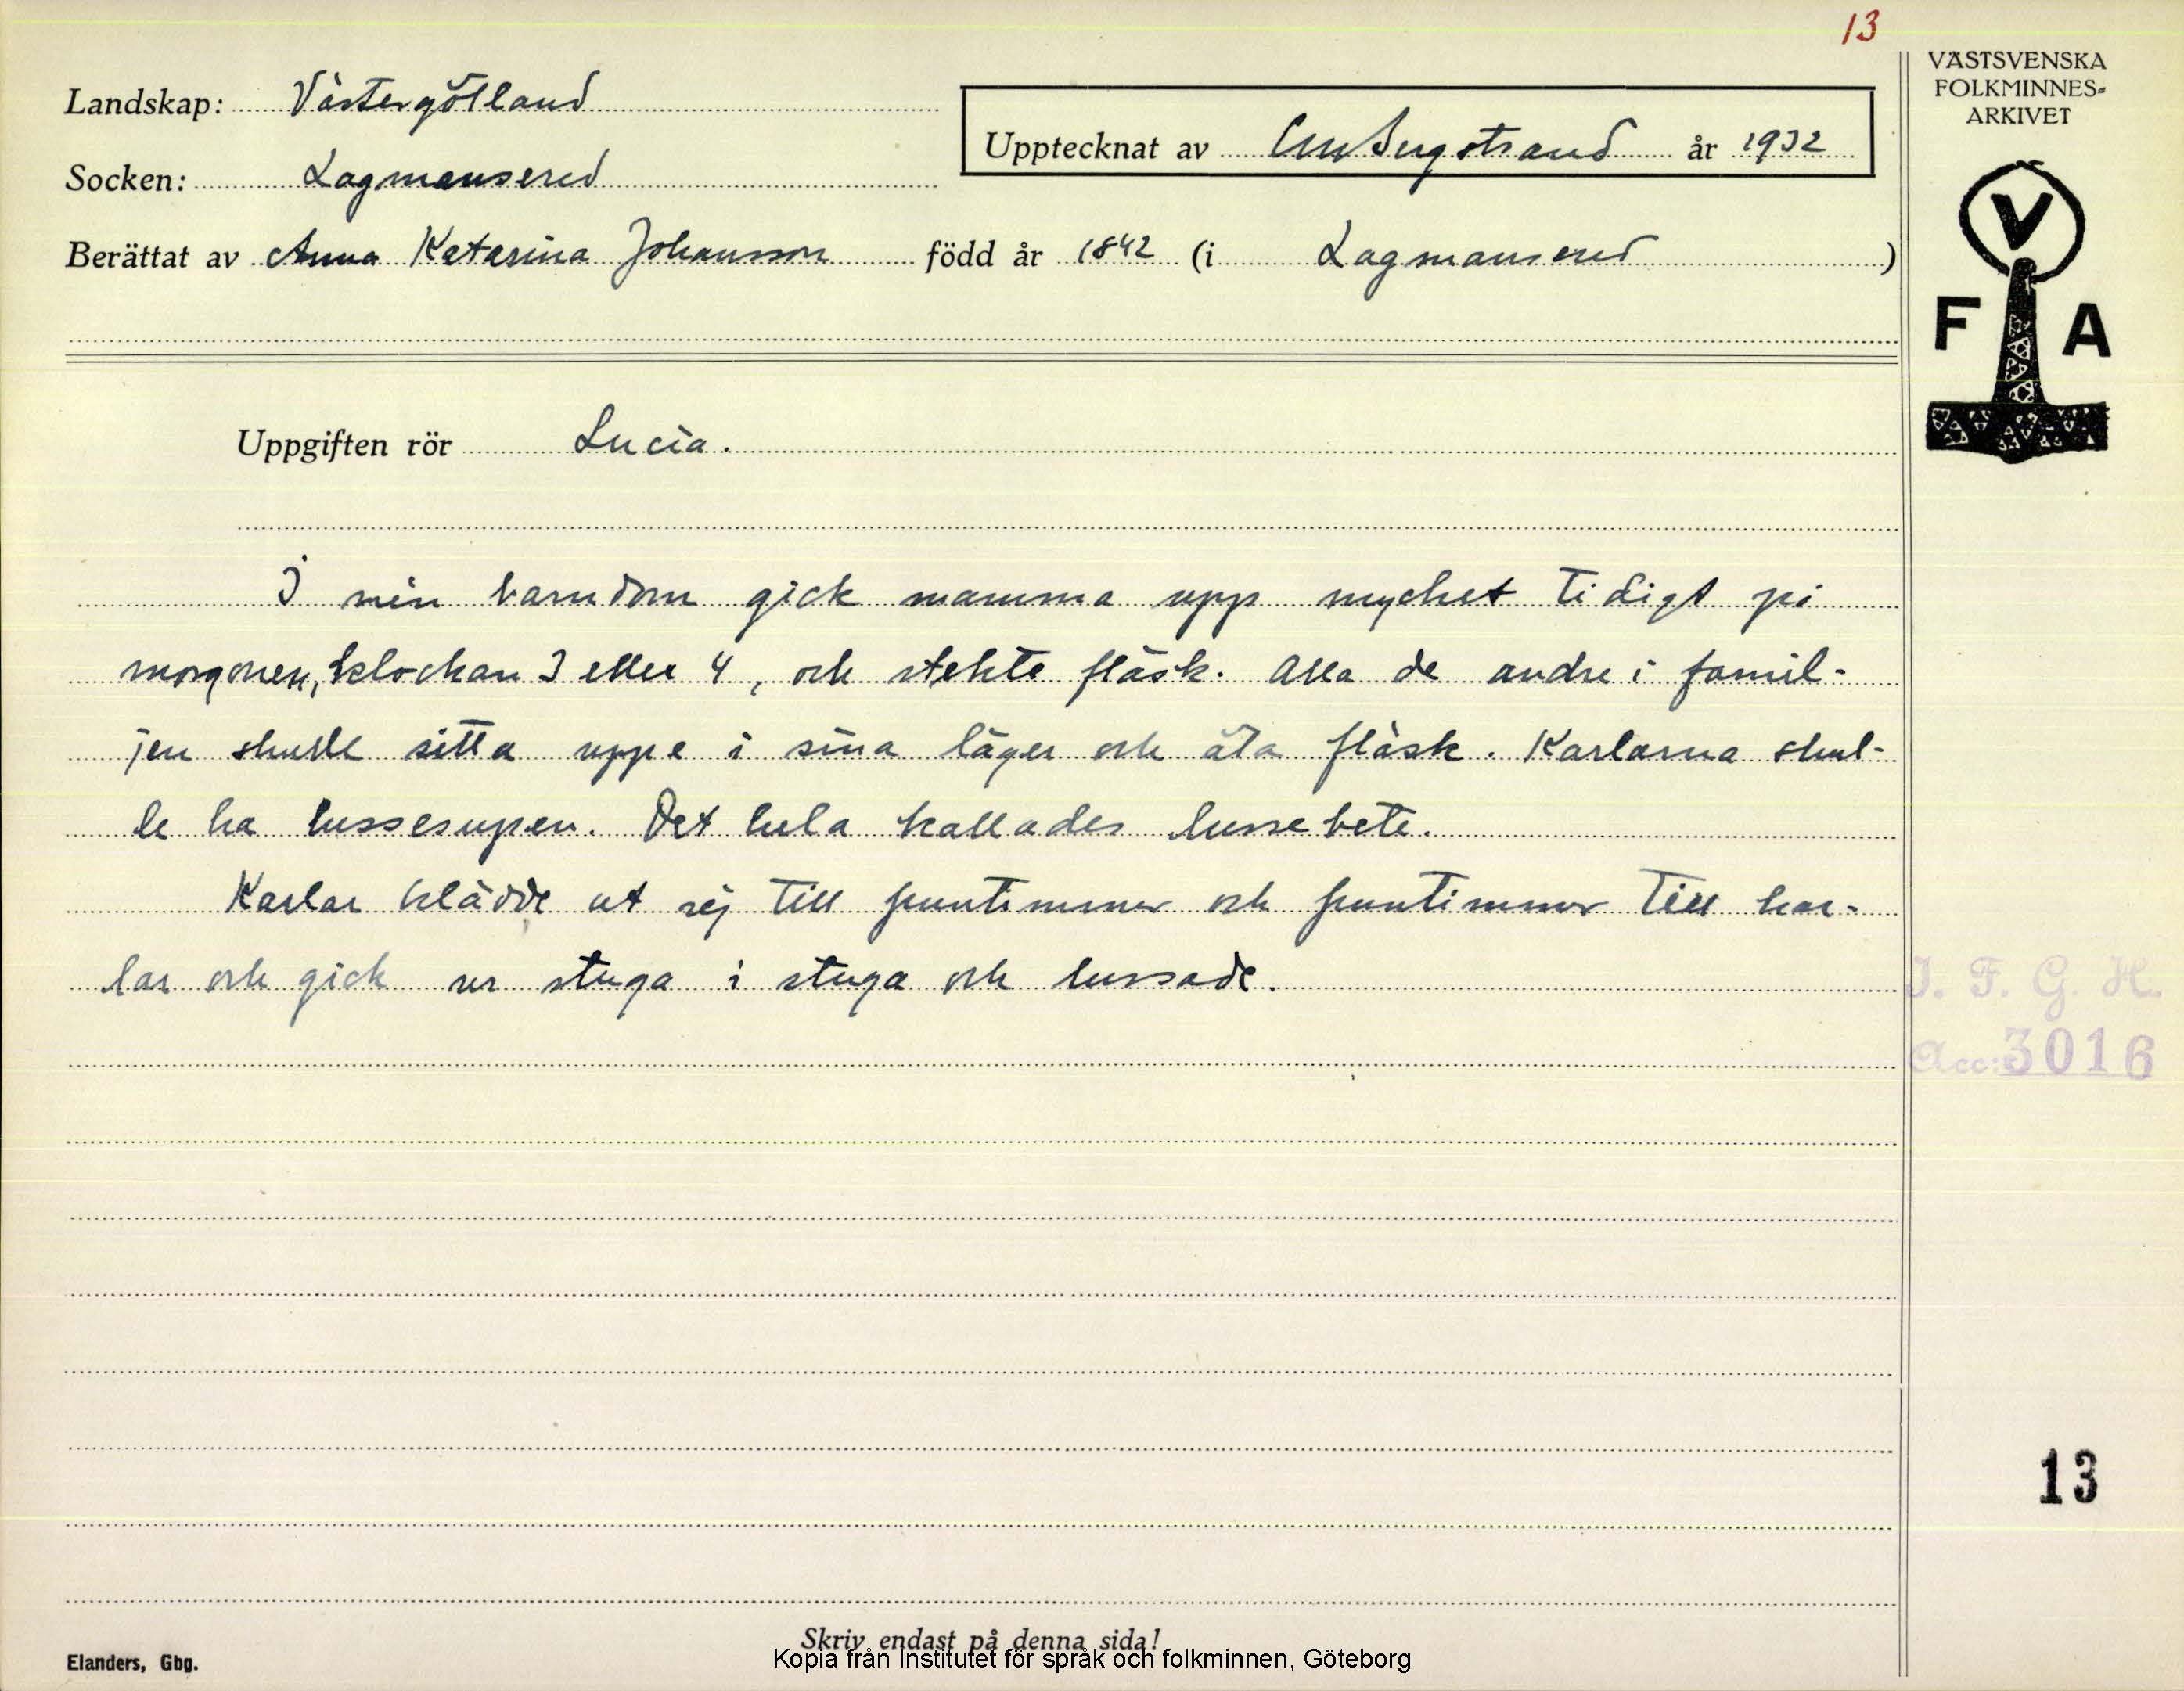 13
VÄSTSVENSKA
FOLKMINNES-
ARKIVET
Landskap: Västergötland
Upptecknat av CM Bergstrand år 1932
Socken: Lagmansered
Berättat av Anna Katarina Johansson född år 1842 (i Lagmansered)
V
F A
Uppgiften rör Lucia.
I min barndom gick mamma upp mycket tidigt på
morgonen, klockan 3 eller 4, och stekte fläsk. Alla de andre i famil-
jen skulle sitta uppe i sina läger och äta fläsk. Karlarna skul-
le ha lussesupen. Det hela kallades lussebete.
Karlar klädde ut sej till fruntimmer och fruntimmer till kar-
lar och gick ur stuga i stuga och lussade.
I. F. G. H.
Acc: 3016
13
Skriv endast på denna sida!
Elanders, Gbg.
Kopia från Institutet för språk och folkminnen, Göteborg